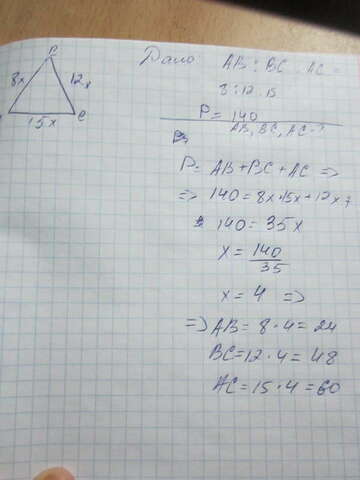 B
8x 12x
C
15x
Дано AB : BC : AC =
8 : 12 : 15
P = 140
AB, BC, AC - ?
P = AB + BC + AC =>
=> 140 = 8x + 15x + 12x
140 = 35x
x = 140
35
x = 4 =>
=> AB = 8 · 4 = 24
BC = 12 · 4 = 48
AC = 15 · 4 = 60